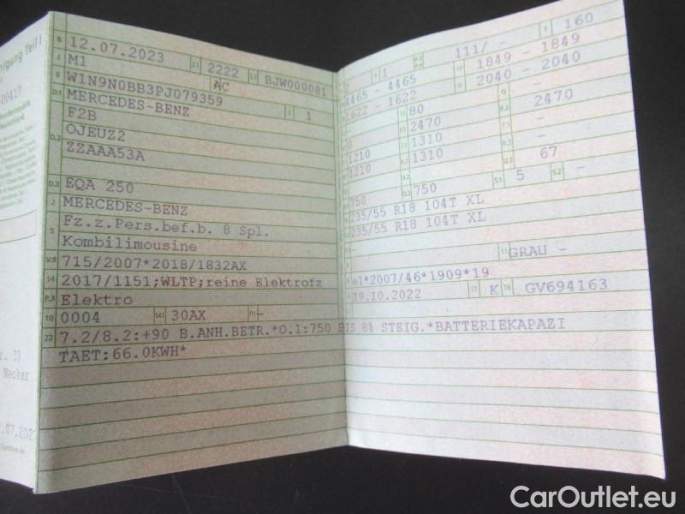 B 12.07.2023 2222 BJW000081
J M1 AC
E W1N9N0BB3PJ079359 1
D.1 MERCEDES-BENZ
F2B
D.2 OJEUZ2
ZZAAA53A
D.3 EQA 250
2 MERCEDES-BENZ
5 Fz.z.Pers.bef.b. 8 Spl.
Kombilimousine
V.9 715/2007*2018/1832AX
14 2017/1151;WLTP;reine Elektrofz
P.3 Elektro
10 0004 14.1 30AX
22 7.2/8.2:+90 B.ANH.BETR.*O.1:750 BIS 8% STEIG.*BATTERIEKAPAZI
TAET:66.0KWH*
1 111/ - 160
4465 - 4465 1849 - 1849
1622 - 1622 2040 - 2040
80 2470
2470 -
1310 1310 -
1310 1310 -
67
750 750 5 -
235/55 R18 104T XL
235/55 R18 104T XL
GRAU -
e1*2007/46*1909*19
19.10.2022 K GV694163
CarOutlet.eu